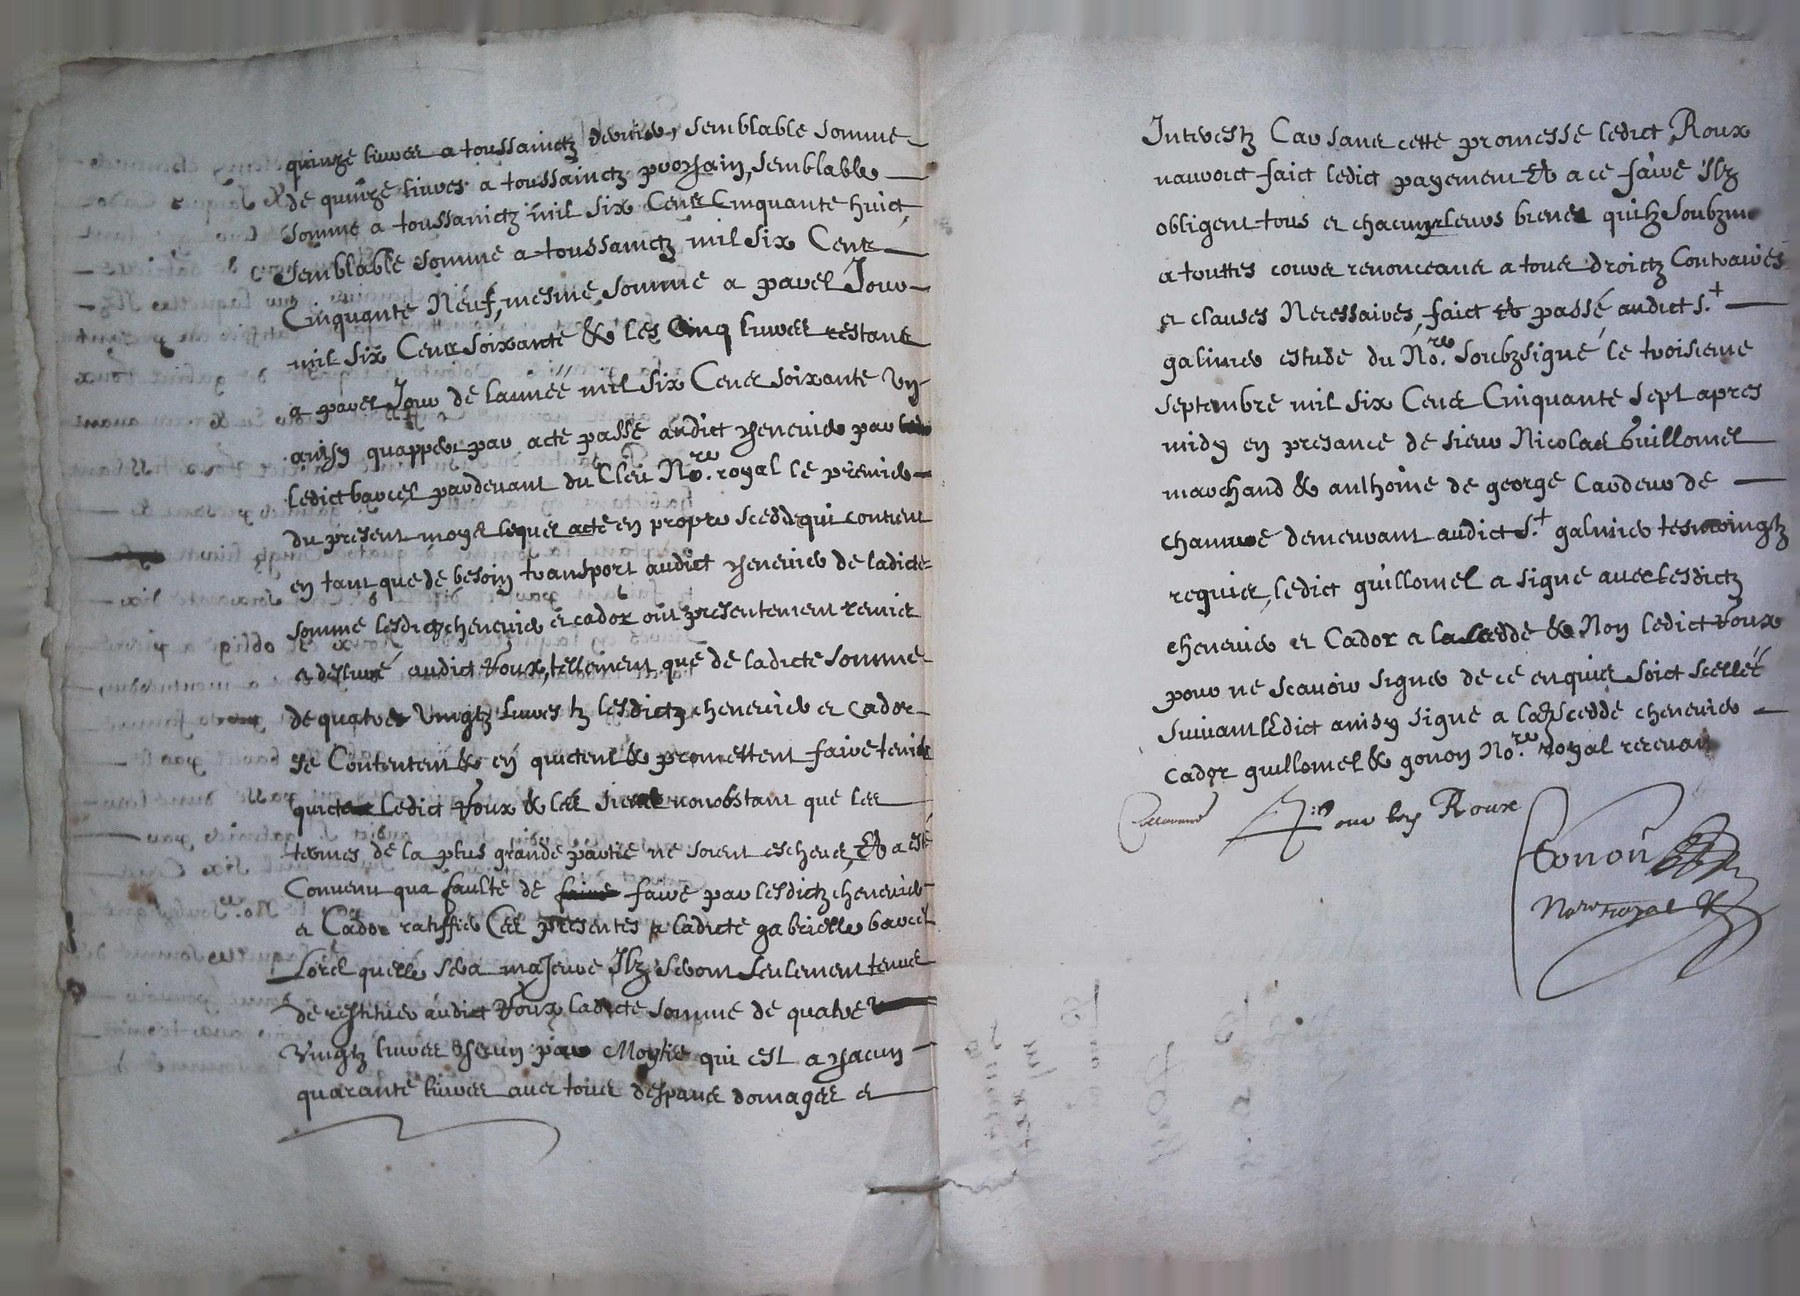 quinze livres a toussainctz dernier, semblable somme
de quinze livres a toussainctz prochain, semblable
somme a toussainctz mil six Cens Cinquante huict,
semblable somme a toussainctz mil six Cens
Cinquante Neuf, mesme somme a pareil Jour
mil six Cens soixante & les Cinq livres restans
a pareil Jour de lannéé mil six Cens soixante Un
ainsy quappert par acte passé audict chenevier par
ledict barcel pardevant du Cleri No.re royal le premier
du present moys lequel acte en propre scedde qui contient
en tant que de besoin transport audict chenevier de ladicte
somme lesdictz chenevier et cador ont presentement remict
et deslivré audict Roux, tellement que de ladicte somme
de quatre Vingtz livres lesdictz chenevier et Cador
se Contentent & en quictent & promettent faire tenir
quicte ledict Roux & les siens nonobstant que les
termes de la plus grande partie ne soient escheus, Et a esté
Convenu qua faulte de faire par lesdictz chenevier
et Cador ratiffier Ces presentes a ladicte gabrielle barcel
Lors quelle sera majeure Ilz seront seulement tenus
de restituer audict Roux ladicte somme de quatre
Vingtz livres chacun par Moytie qui est a chacun
quarante livres avec tous despans domages et
Interestz Car sans cette promesse ledict Roux
nauroict faict ledict payement Et a ce faire Ilz
obligent tous et chacuns leurs biens quilz soubzm
a touttes cours renonceans a tous droictz Contraires
et clauses Necessaires, faict et passé audict S.t
galmier estude du No.re soubzsigné le troisieme
septembre mil six Cens Cinquante sept apres
midy en presance de sieur Nicolas Guillomel
marchand & anthoine de george Cardeur de
chanvre demeurant audict S.t galmier tesmoingtz
requis, ledict guillomel a signé avec lesdictz
chenevier et Cador a la cedde & Non ledict Roux
pour ne scavoir signer de ce enquis soict scelléé
suivant Ledict ainsy signé a la scedde chenevier
Cador guillomel & gonon No.re royal recevan
Pour ledict Roux
Gonon
No.re royal